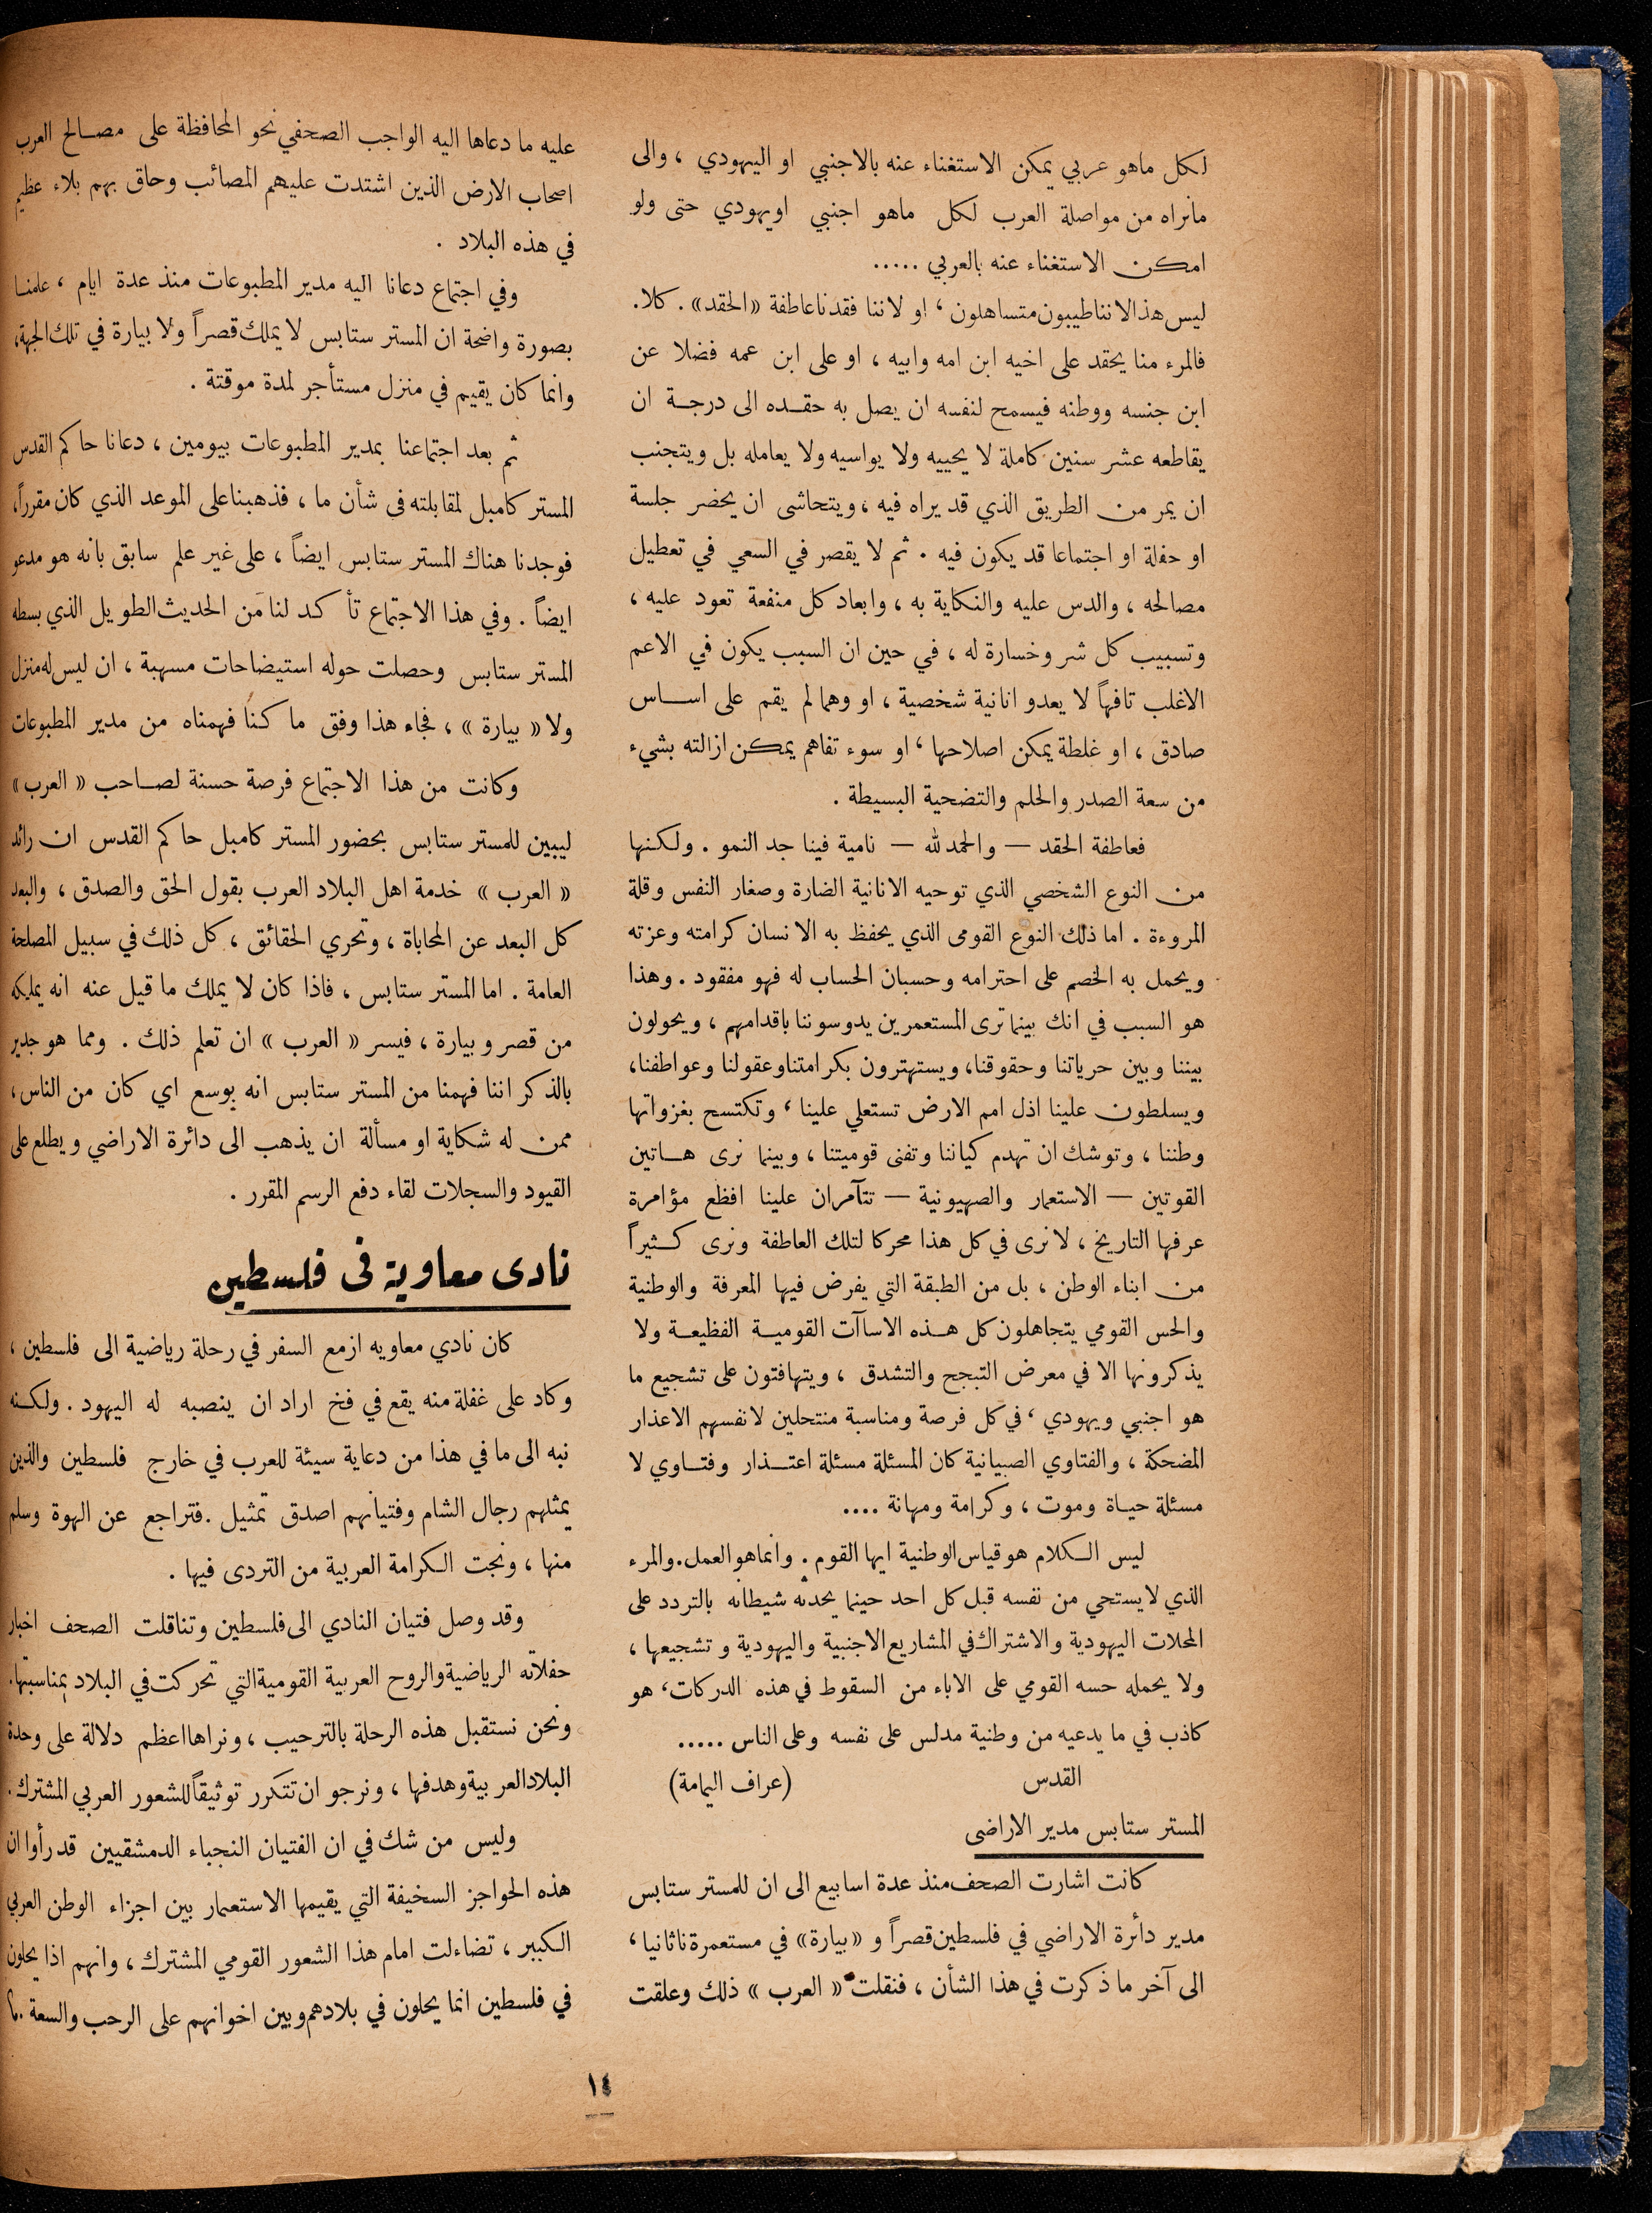 لكل ماهو عربي يمكن الاستغناء عنه بالاجنبي او اليهودي ، والى
مانراه من مواصلة العرب لكل ماهو اجنبي اويهودي حتى ولو
امكن الاستغناء عنه بالعربي .....
ليس هذا لاننا طيبون متساهلون ، او لاننا فقدنا عاطفة «الحقد» . كلا .
فالمرء منا يحقد على اخيه ابن امه وابيه ، او على ابن عمه فضلا عن
ابن جنسه ووطنه فيسمح لنفسه ان يصل به حقده الى درجة ان
يقاطعه عشر سنين كاملة لا يحييه ولا يواسيه ولا يعامله بل ويتجنب
ان يمر من الطريق الذي قد يراه فيه ، ويتحاشى ان يحضر جلسة
او حفلة او اجتماعا قد يكون فيه . ثم لا يقصر في السعي في تعطيل
مصالحه ، والدس عليه والنكاية به ، وابعاد كل منفعة تعود عليه ،
وتسبيب كل شر وخسارة له ، في حين ان السبب يكون في الاعم
الاغلب تافهاً لا يعدو انانية شخصية ، او وهما لم يقم على اساس
صادق ، او غلطة يمكن اصلاحها ، او سوء تفاهم يمكن ازالته بشيء
من سعة الصدر والحلم والتضحية البسيطة .
فعاطفة الحقد — والحمد لله — نامية فينا جد النمو . ولكنها
من النوع الشخصي الذي توحيه الانانية الضارة وصغار النفس وقلة
المروءة . اما ذلك النوع القومى الذي يحفظ به الانسان كرامته وعزته
ويحمل به الخصم على احترامه وحسبان الحساب له فهو مفقود . وهذا
هو السبب في انك بينما ترى المستعمرين يدوسوننا باقدامهم ، ويحولون
بيننا وبين حرياتنا وحقوقنا، ويستهترون بكرامتنا وعقولنا وعواطفنا،
ويسلطون علينا اذل امم الارض تستعلي علينا ، وتكتسح بغزواتها
وطننا ، وتوشك ان تهدم كياننا وتفنى قوميتنا ، وبينما نرى هاتين
القوتين — الاستعمار والصهيونية — تتآمران علينا افظع مؤامرة
عرفها التاريخ ، لا نرى في كل هذا محركا لتلك العاطفة ونرى كثيراً
من ابناء الوطن ، بل من الطبقة التي يفرض فيها المعرفة والوطنية
والحس القومي يتجاهلون كل هذه الاساآت القومية الفظيعة ولا
يذكرونها الا في معرض التبجح والتشدق ، ويتهافتون على تشجيع ما
هو اجنبي ويهودي ، في كل فرصة ومناسبة منتحلين لانفسهم الاعذار
المضحكة ، والفتاوي الصبيانية كان المسئلة مسئلة اعتذار وفتاوي لا
مسئلة حياة وموت ، وكرامة ومهانة ....
ليس الكلام هو قياس الوطنية ايها القوم . وانما هو العمل . والمرء
الذي لا يستحي من نفسه قبل كل احد حينما يحدثه شيطانه بالتردد على
المحلات اليهودية والاشتراك في المشاريع الاجنبية واليهودية وتشجيعها ،
ولا يحمله حسه القومي على الاباء من السقوط في هذه الدركات ، هو
كاذب في ما يدعيه من وطنية مدلس على نفسه وعلى الناس .....
القدس (عراف اليمامة)
المستر ستابس مدير الاراضى
كانت اشارت الصحف منذ عدة اسابيع الى ان للمستر ستابس
مدير دائرة الاراضي في فلسطين قصراً و «بيارة» في مستعمرة ناثانيا ،
الى آخر ما ذكرت في هذا الشأن ، فنقلت « العرب » ذلك وعلقت
عليه ما دعاها اليه الواجب الصحفي نحو المحافظة على مصالح العرب
اصحاب الارض الذين اشتدت عليهم المصائب وحاق بهم بلاء عظيم
في هذه البلاد .
وفي اجتماع دعانا اليه مدير المطبوعات منذ عدة ايام ، علمنا
بصورة واضحة ان المستر ستابس لا يملك قصراً ولا بيارة في تلك الجهة،
وانما كان يقيم في منزل مستأجر لمدة موقتة .
ثم بعد اجتماعنا بمدير المطبوعات بيومين ، دعانا حاكم القدس
المستر كامبل لمقابلته في شأن ما ، فذهبنا على الموعد الذي كان مقرراً،
فوجدنا هناك المستر ستابس ايضاً ، على غير علم سابق بانه هو مدعو
ايضاً . وفي هذا الاجتماع تأكد لنا من الحديث الطويل الذي بسطه
المستر ستابس وحصلت حوله استيضاحات مسهبة ، ان ليس له منزل
ولا « بيارة » ، فجاء هذا وفق ما كنا فهمناه من مدير المطبوعات
وكانت من هذا الاجتماع فرصة حسنة لصاحب « العرب »
ليبين للمستر ستابس بحضور المستر كامبل حاكم القدس ان رائد
« العرب » خدمة اهل البلاد العرب بقول الحق والصدق ، والبعد
كل البعد عن المحاباة ، وتحري الحقائق ، كل ذلك في سبيل المصلحة
العامة . اما المستر ستابس ، فاذا كان لا يملك ما قيل عنه انه يملكه
من قصر وبيارة ، فيسر « العرب » ان تعلم ذلك . ومما هو جدير
بالذكر اننا فهمنا من المستر ستابس انه بوسع اي كان من الناس ،
ممن له شكاية او مسألة ان يذهب الى دائرة الاراضي ويطلع على
القيود والسجلات لقاء دفع الرسم المقرر .
نادى معاوية فى فلسطين
كان نادي معاويه ازمع السفر في رحلة رياضية الى فلسطين ،
وكاد على غفلة منه يقع في فخ اراد ان ينصبه له اليهود . ولكنه
نبه الى ما في هذا من دعاية سيئة للعرب في خارج فلسطين والذين
يمثلهم رجال الشام وفتيانهم اصدق تمثيل . فتراجع عن الهوة وسلم
منها ، ونجت الكرامة العربية من التردى فيها .
وقد وصل فتيان النادي الى فلسطين وتناقلت الصحف اخبار
حفلاته الرياضية والروح العربية القومية التي تحركت في البلاد بمناسبتها.
ونحن نستقبل هذه الرحلة بالترحيب ، ونراها اعظم دلالة على وحدة
البلاد العربية وهدفها ، ونرجو ان تتكرر توثيقاً للشعور العربي المشترك .
وليس من شك في ان الفتيان النجباء الدمشقيين قد رأوا ان
هذه الحواجز السخيفة التي يقيمها الاستعمار بين اجزاء الوطن العربي
الكبير ، تضاءلت امام هذا الشعور القومي المشترك ، وانهم اذا يحلون
في فلسطين انما يحلون في بلادهم وبين اخوانهم على الرحب والسعة .
١٤